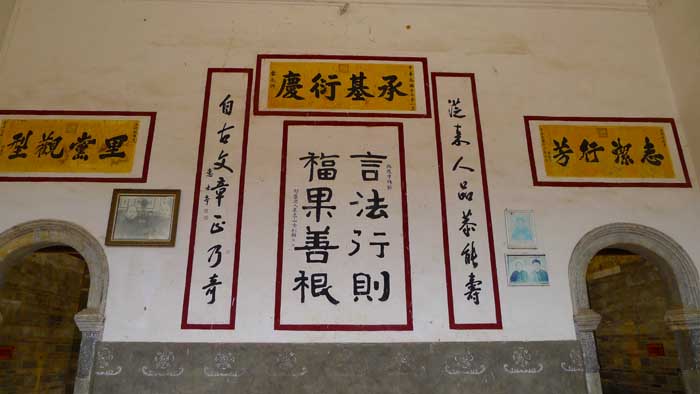 承基衍慶
里黨觀型
志潔行芳
從來人品恭能壽
言法行則
福果善根
自古文章正乃奇